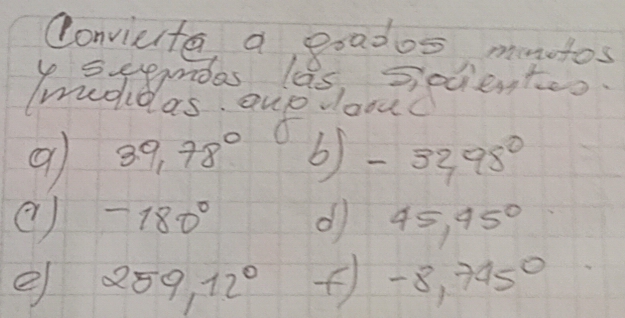 Convierta a grados minutos
y segundos las siguientes
medidas angulares
a) 39,78° b) - 32,98°
c) -180° d) 45,45°
e) 259,12° f) -8,745°